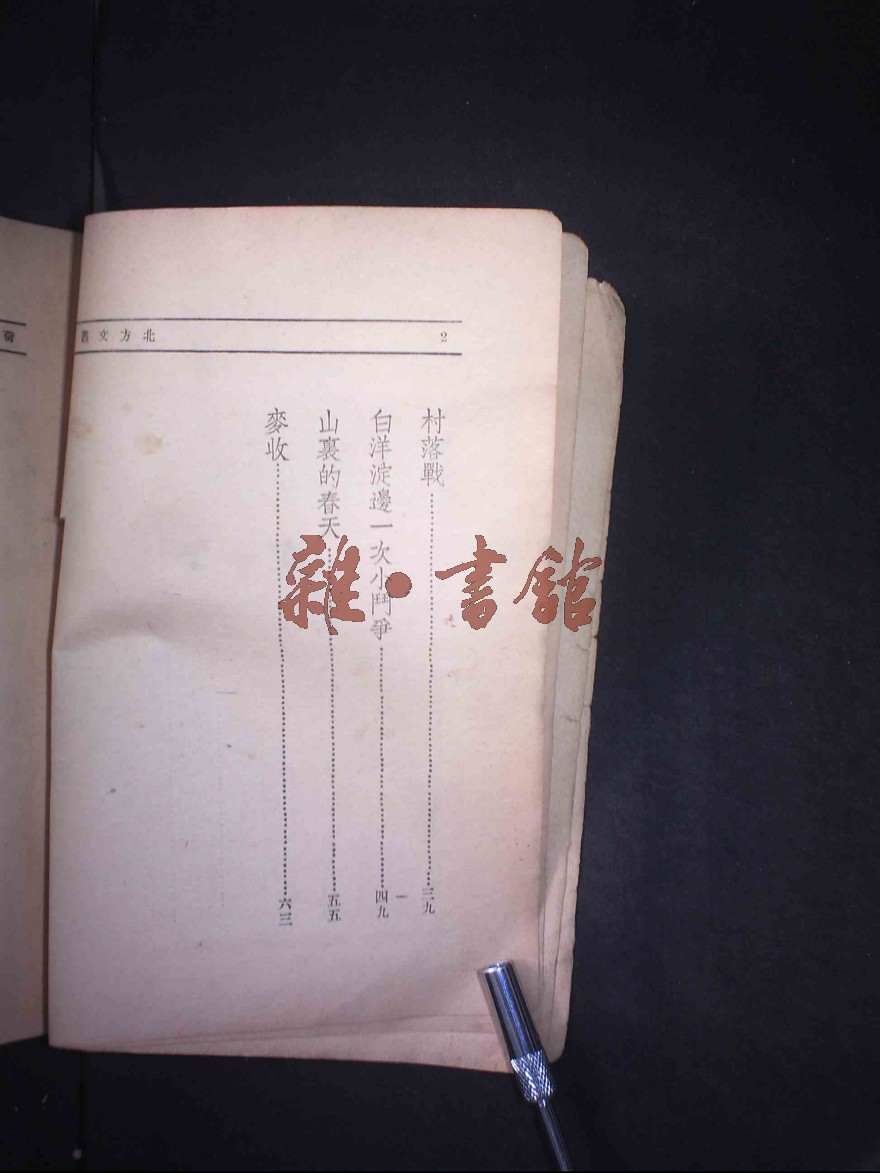 北方文叢
2
村落戰……三九
白洋淀邊一次小鬥爭……四九
山裏的春天……五五
麥收……六三
雜·書館